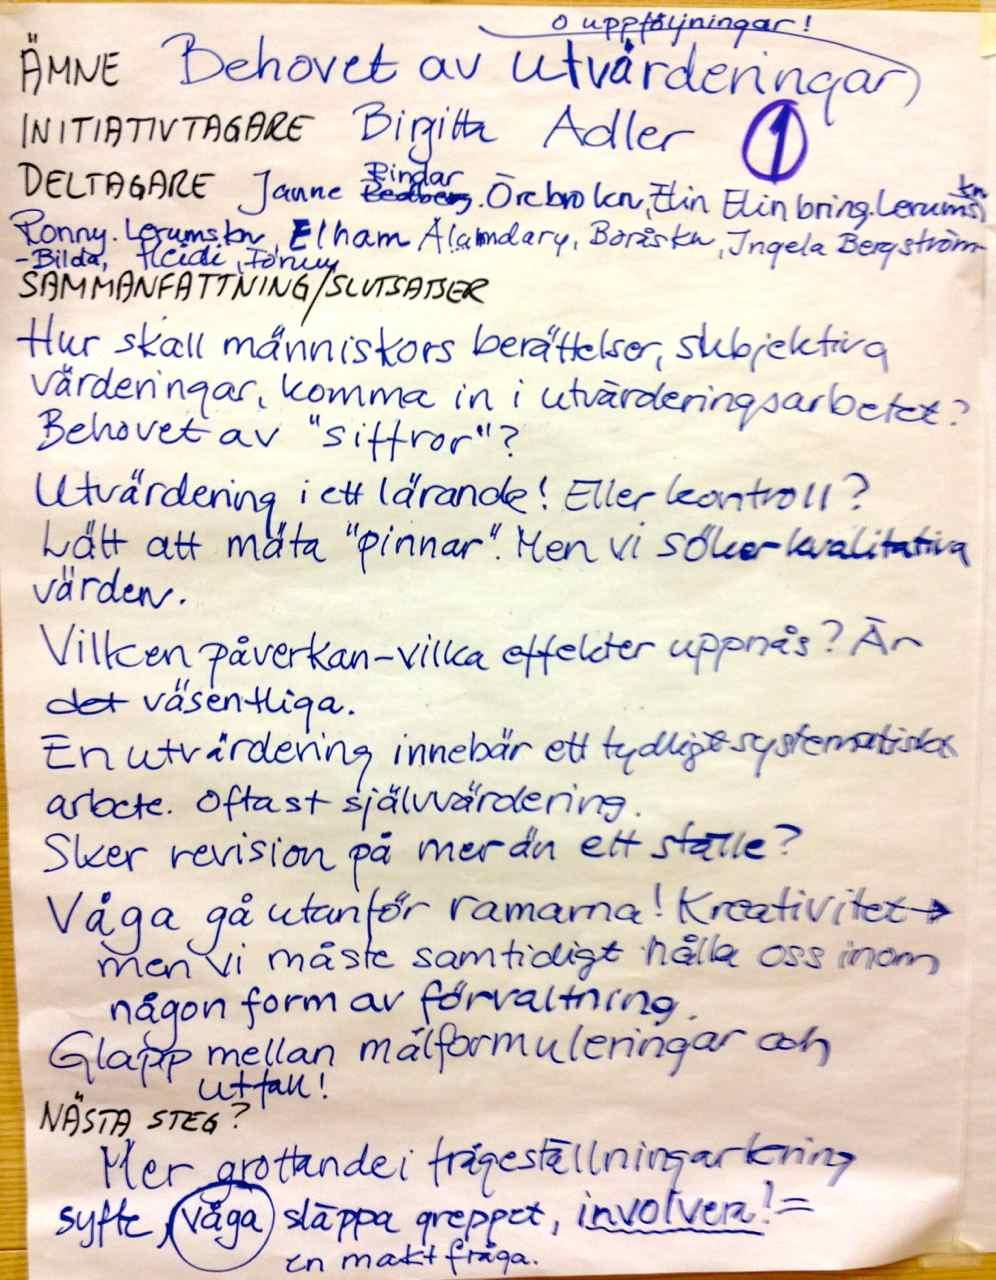 o uppföljningar!
ÄMNE Behovet av utvärderingar
INITIATIVTAGARE Birgitta Adler 1
DELTAGARE Janne Pindar Örebro kn, Elin Elinbring. Lerums kn
Ronny. Lerums kn, Elham Alamdary, Borås kn, Ingela Bergström
-Bilda, Heidi,
SAMMANFATTNING/SLUTSATSER
Hur skall människors berättelser, subjektiva
värderingar, komma in i utvärderingsarbetet?
Behovet av "siffror"?
Utvärdering i ett lärande! Eller kontroll?
Lätt att mäta "pinnar". Men vi söker kvalitativa
värden.
Vilken påverkan-vilka effekter uppnås? Är
det väsentliga.
En utvärdering innebär ett tydligt systematiskt
arbete. Oftast självvärdering.
Sker revision på mer än ett ställe?
Våga gå utanför ramarna! Kreativitet →
men vi måste samtidigt hålla oss inom
någon form av förvaltning.
Glapp mellan målformuleringar och
utfall!
NÄSTA STEG?
Mer grottande i frågeställningar kring
syfte, våga släppa greppet, involvera! =
en maktfråga.